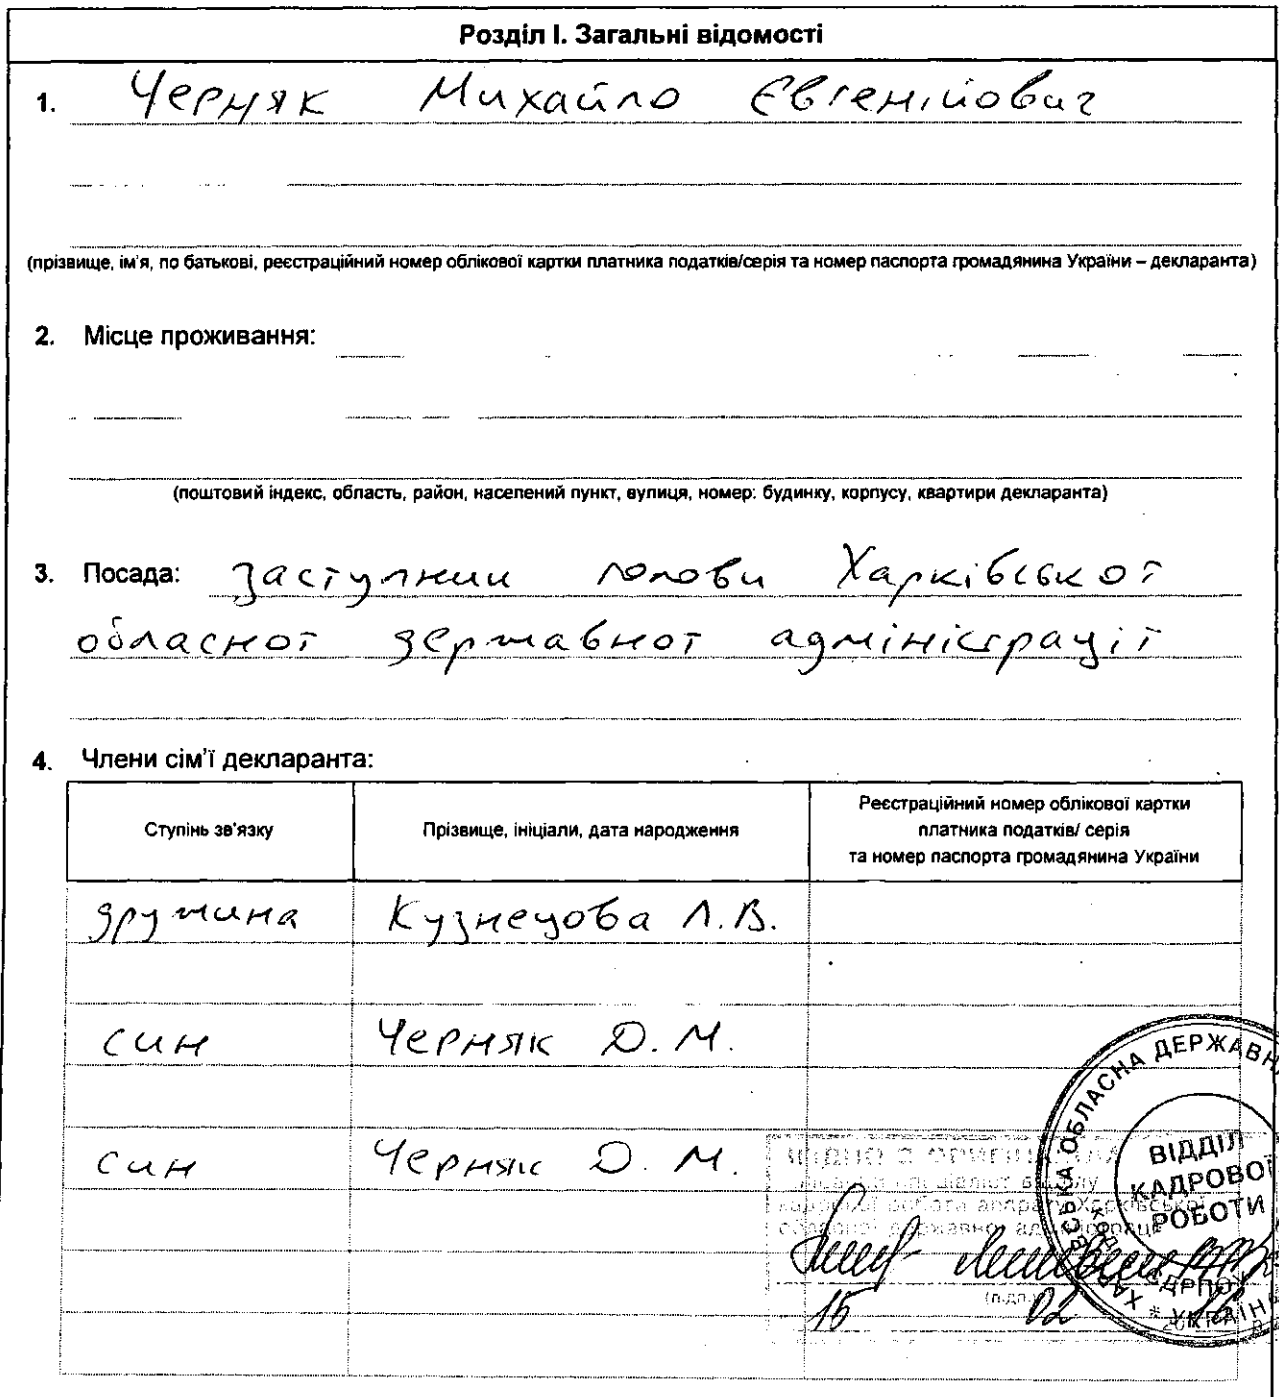 Розділ І. Загальні відомості
1. Черняк Михайло Євгенійович
(прізвище, ім'я, по батькові, реєстраційний номер облікової картки платника податків/серія та номер паспорта громадянина України – декларанта)
2. Місце проживання:
(поштовий індекс, область, район, населений пункт, вулиця, номер: будинку, корпусу, квартири декларанта)
3. Посада: заступник голови Харківської
обласної державної адміністрації
4. Члени сім'ї декларанта:
Ступінь зв'язку
Прізвище, ініціали, дата народження
Реєстраційний номер облікової картки
платника податків/ серія
та номер паспорта громадянина України
дружина Кузнецова Л.В.
син Черняк Д.М.
син Черняк Д.М.
ОБЛАСНА ДЕРЖАВН
ВІДДІЛ
КАДРОВОЇ
РОБОТИ
15 02